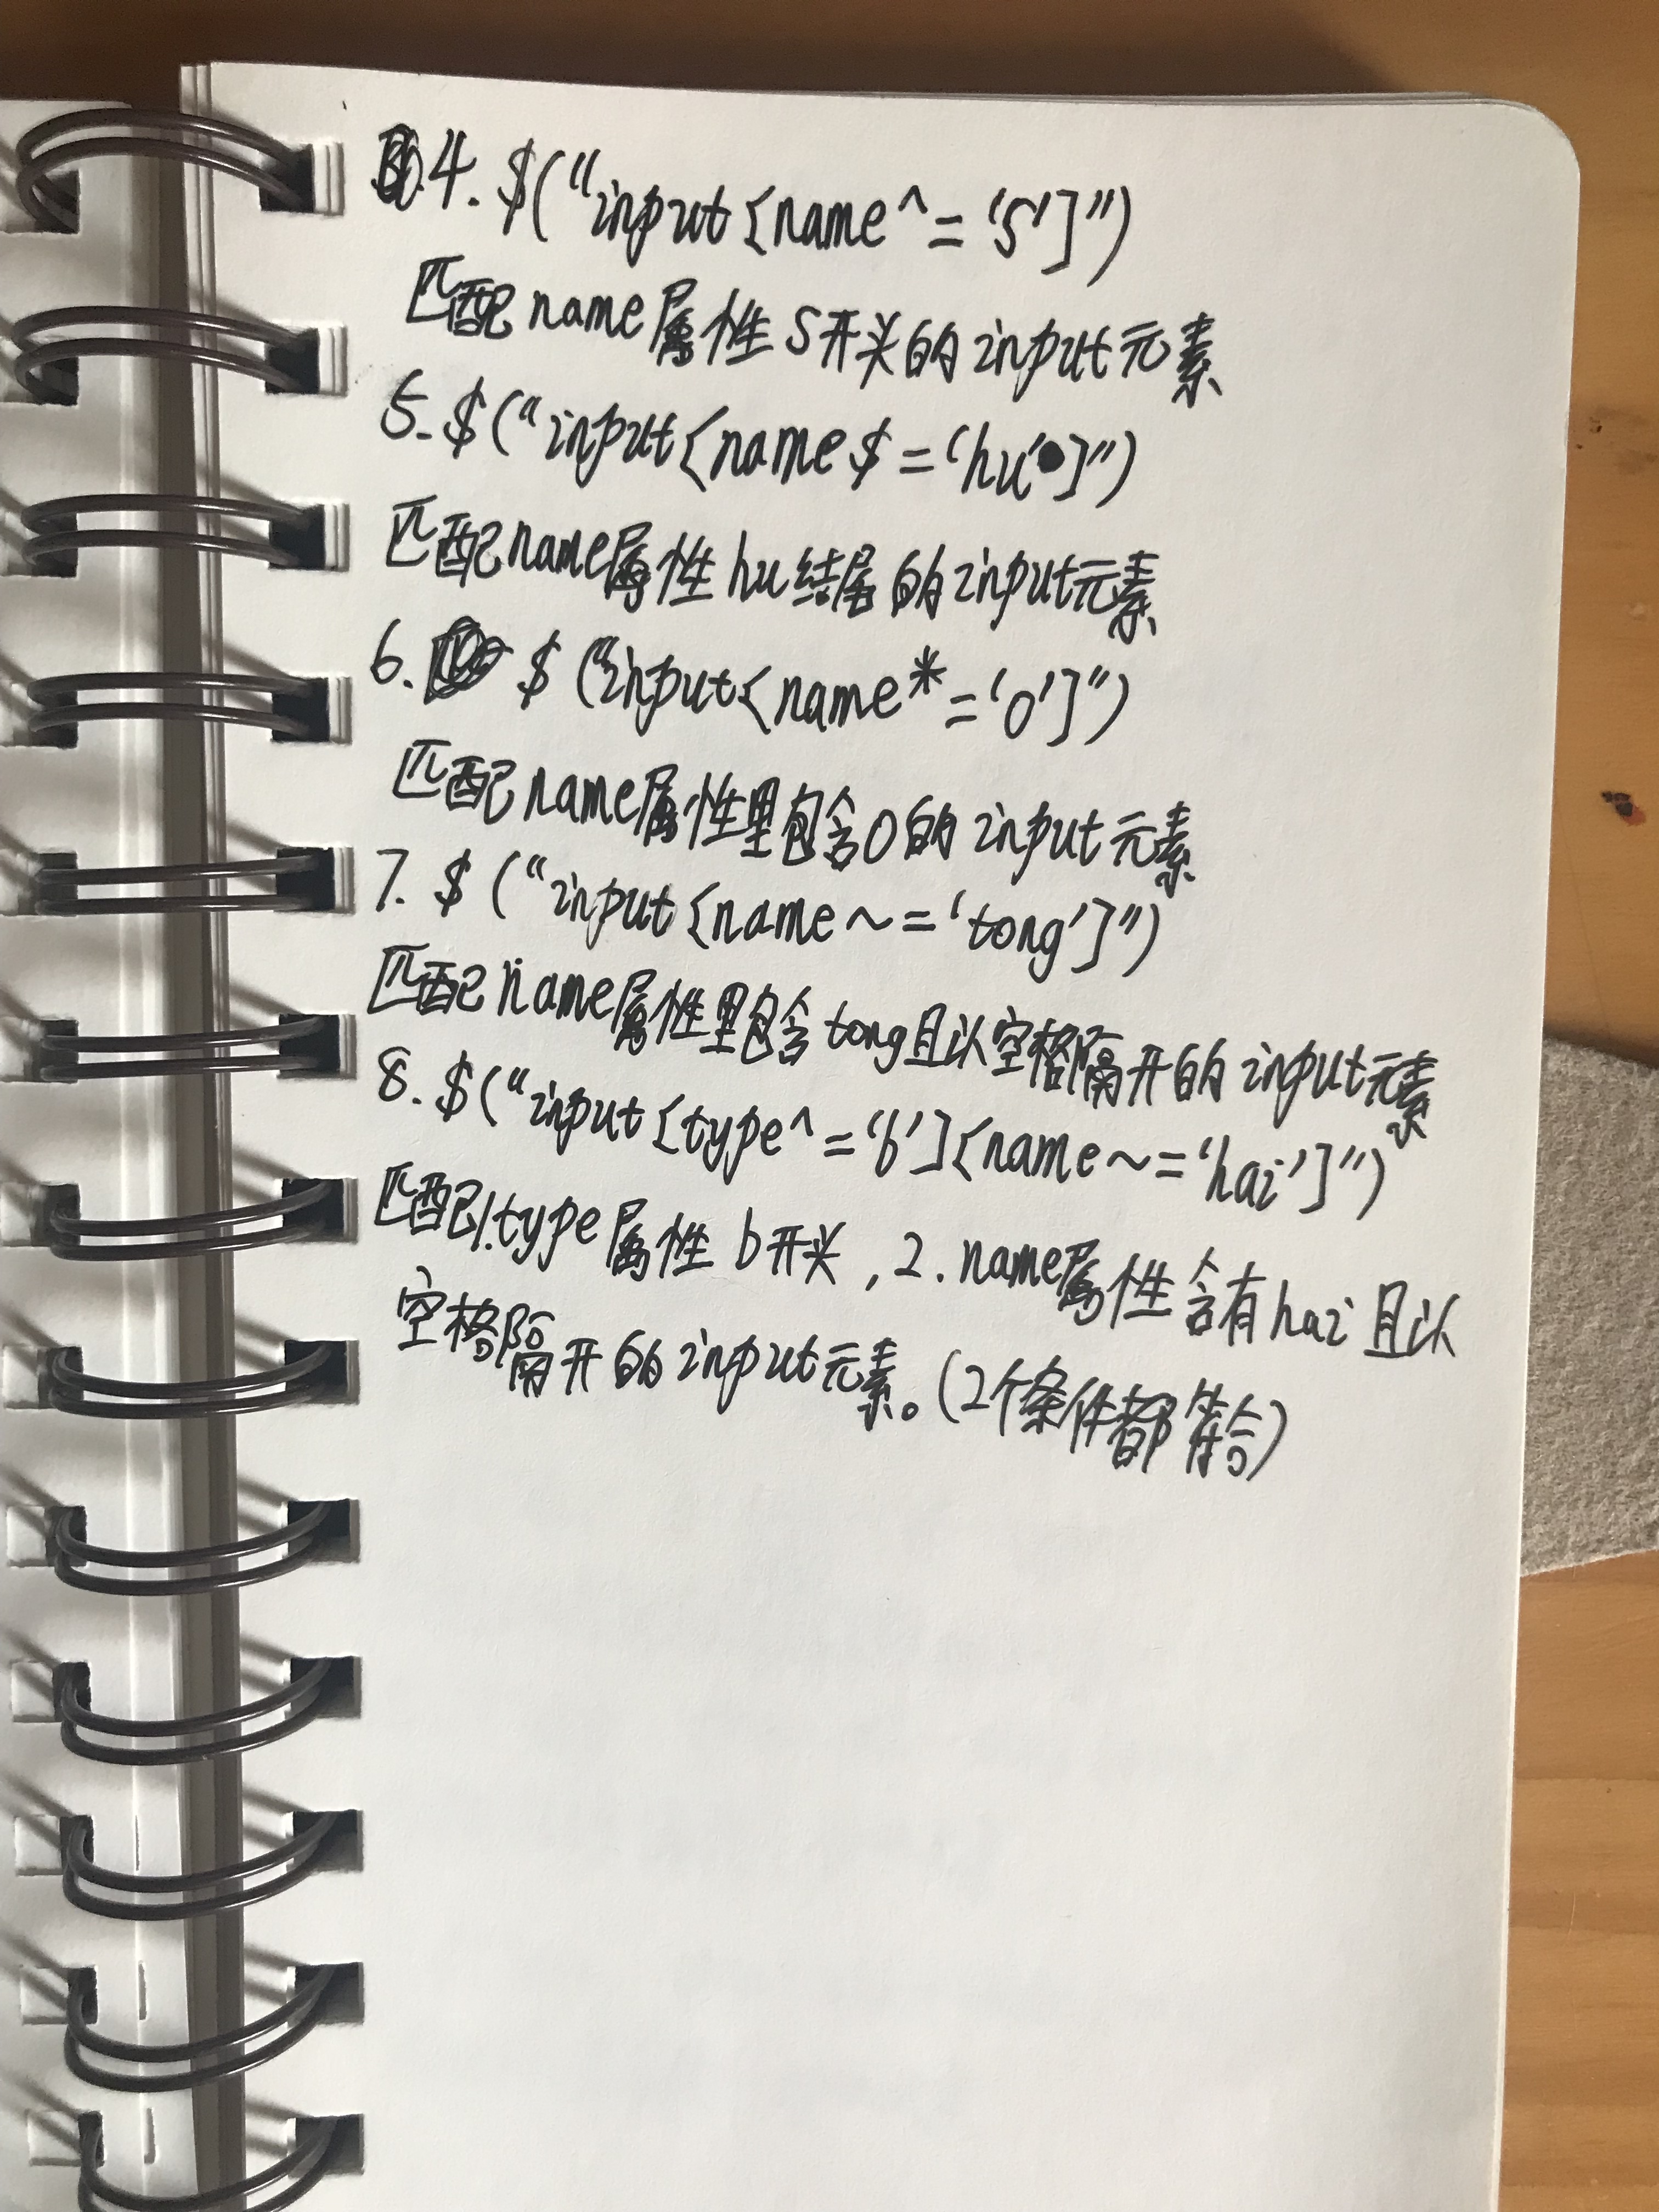 4. $("input[name^='S']")
匹配name属性S开头的input元素
5. $("input[name$='hu']")
匹配name属性hu结尾的input元素
6. $("input[name*='o']")
匹配name属性里包含o的input元素
7. $("input[name~='tong']")
匹配name属性里包含tong且以空格隔开的input元素
8. $("input[type^='b'][name~='hai']")
匹配1.type属性b开头,2.name属性含有hai且以
空格隔开的input元素。(2个条件都符合)